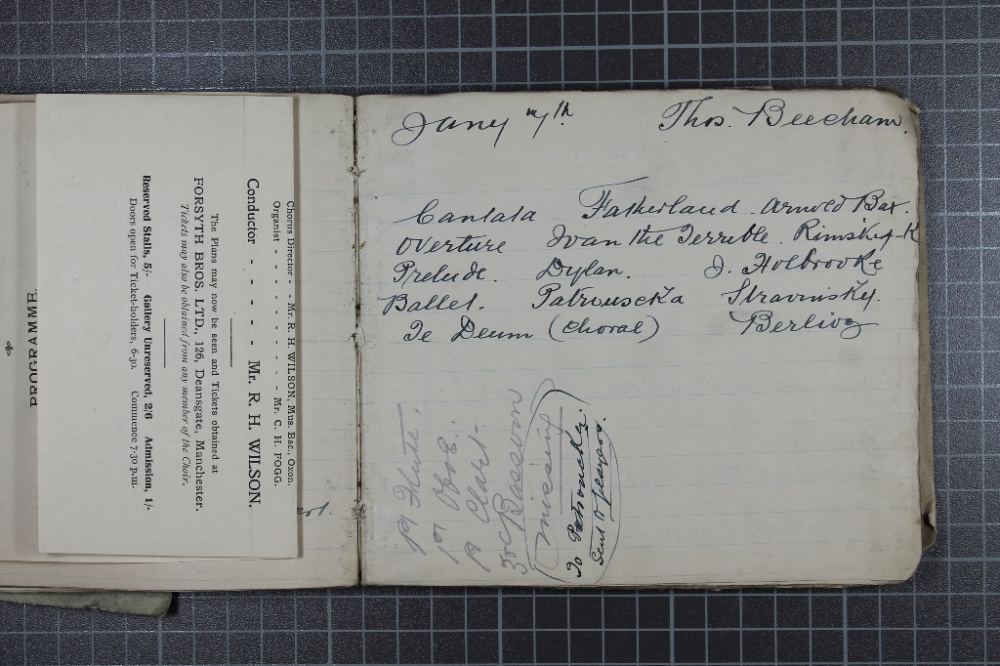 PROGRAMME.
Chorus Director - - Mr. R. H. WILSON, Mus. Bac., Oxon.
Organist - - - - - - - - Mr. C. H. FOGG.
Conductor - - - - - Mr. R. H. WILSON.
The Plans may now be seen and Tickets obtained at
FORSYTH BROS. LTD., 126, Deansgate, Manchester.
Tickets may also be obtained from any member of the Choir.
Reserved Stalls, 5/- Gallery Unreserved, 2/6 Admission, 1/-
Doors open for Ticket-holders, 6-30. Commence 7-30 p.m.
Jany 7th Thos. Beecham.
Cantata Fatherland. Arnold Bax.
Overture Ivan the Terrible. Rimsky-K
Prelude. Dylan. J. Holbrooke
Ballet. Patrouscka Stravinsky.
Te Deum (Choral) Berlioz
1st Flute.
1st Oboe.
1st Clart-
3rd Bassoon
(missing)
To Petrouscka.